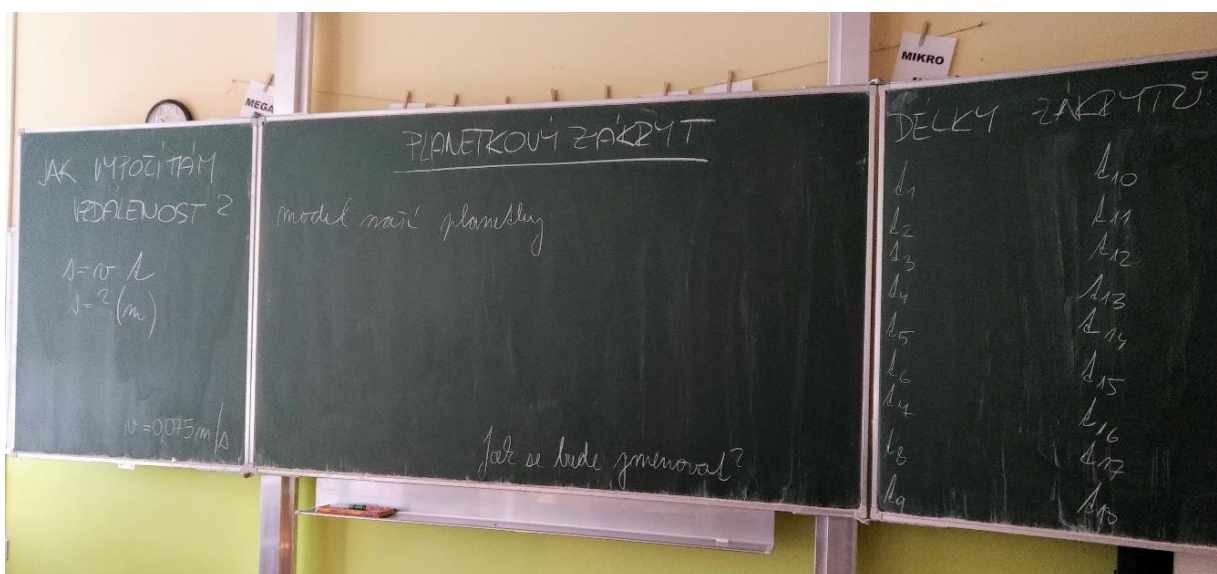 MEGA
MIKRO
JAK VYPOČÍTÁM
VZDÁLENOST ?
s = v t
s = ? (m)
v = 0,075 m/s
PLANETKOVÝ ZÁKRYT
model naší planetky
Jak se bude jmenovat?
DÉLKY ZÁKRYTŮ:
t₁
t₂
t₃
t₄
t₅
t₆
t₇
t₈
t₉
t₁₀
t₁₁
t₁₂
t₁₃
t₁₄
t₁₅
t₁₆
t₁₇
t₁₈